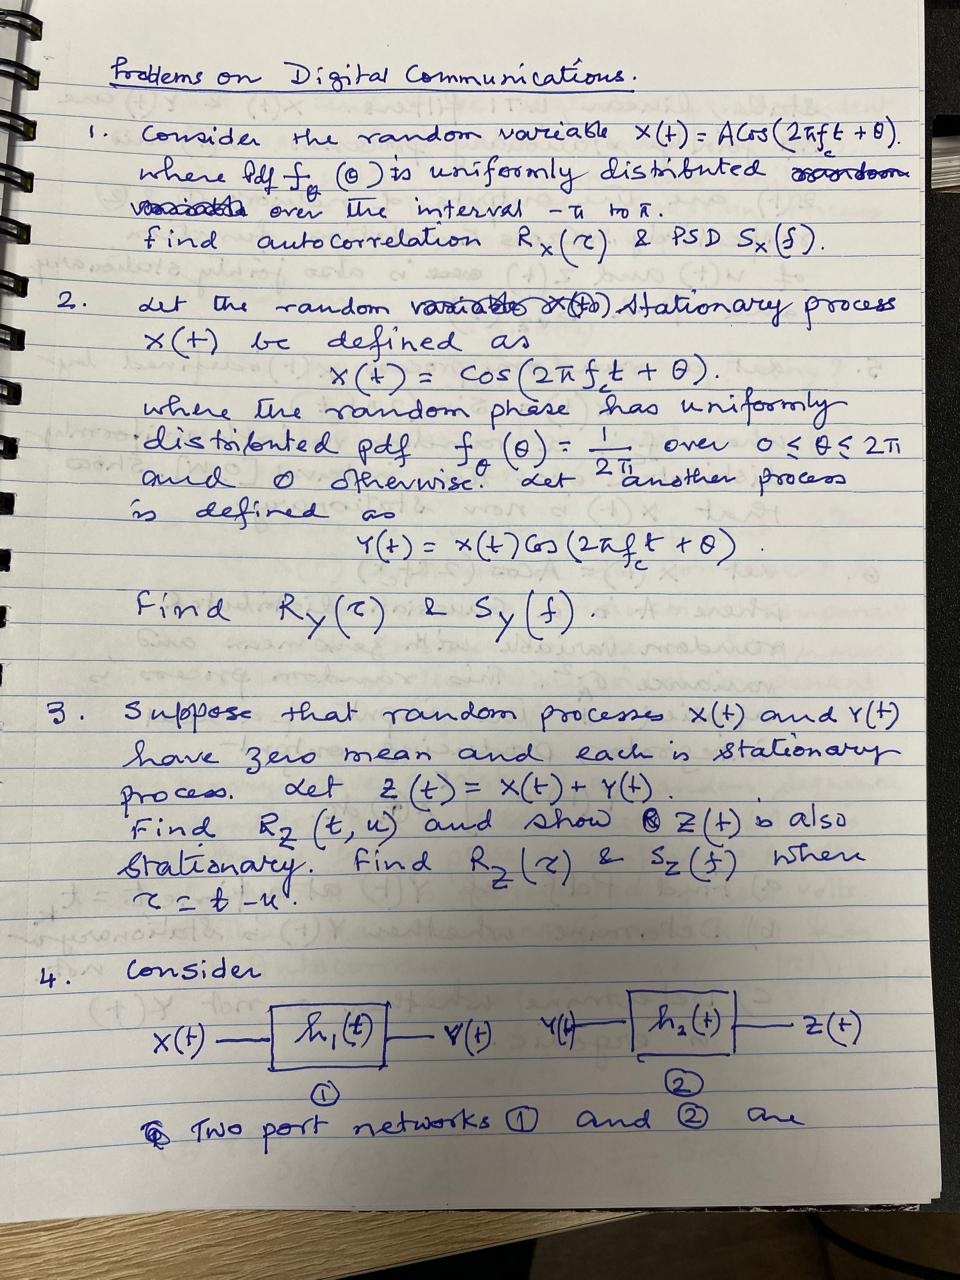 Problems on Digital Communications.
1. Consider the random variable X(t) = A Cos(2πf_c t + θ).
where Pdf f_θ(θ) is uniformly distributed random
variable over the interval -π to π.
Find autocorrelation R_X(τ) & PSD S_X(f).
2. Let the random variable X(t) Stationary process
X(t) be defined as
X(t) = Cos(2πf_c t + θ).
where the random phase has uniformly
distributed pdf f_θ(θ) = 1/2π over 0 ≤ θ ≤ 2π
and 0 otherwise. Let another process
is defined as
Y(t) = X(t) Cos(2πf_c t + θ).
Find R_Y(τ) & S_Y(f).
3. Suppose that random processes X(t) and Y(t)
have zero mean and each is stationary
process. Let Z(t) = X(t) + Y(t).
Find R_Z(t, u) and show Z(t) is also
Stationary. Find R_Z(τ) & S_Z(f) where
τ = t - u.
4. Consider
X(t) h₁(t) Y(t) Y(t) h₂(t) Z(t)
① ②
Two port networks ① and ② are